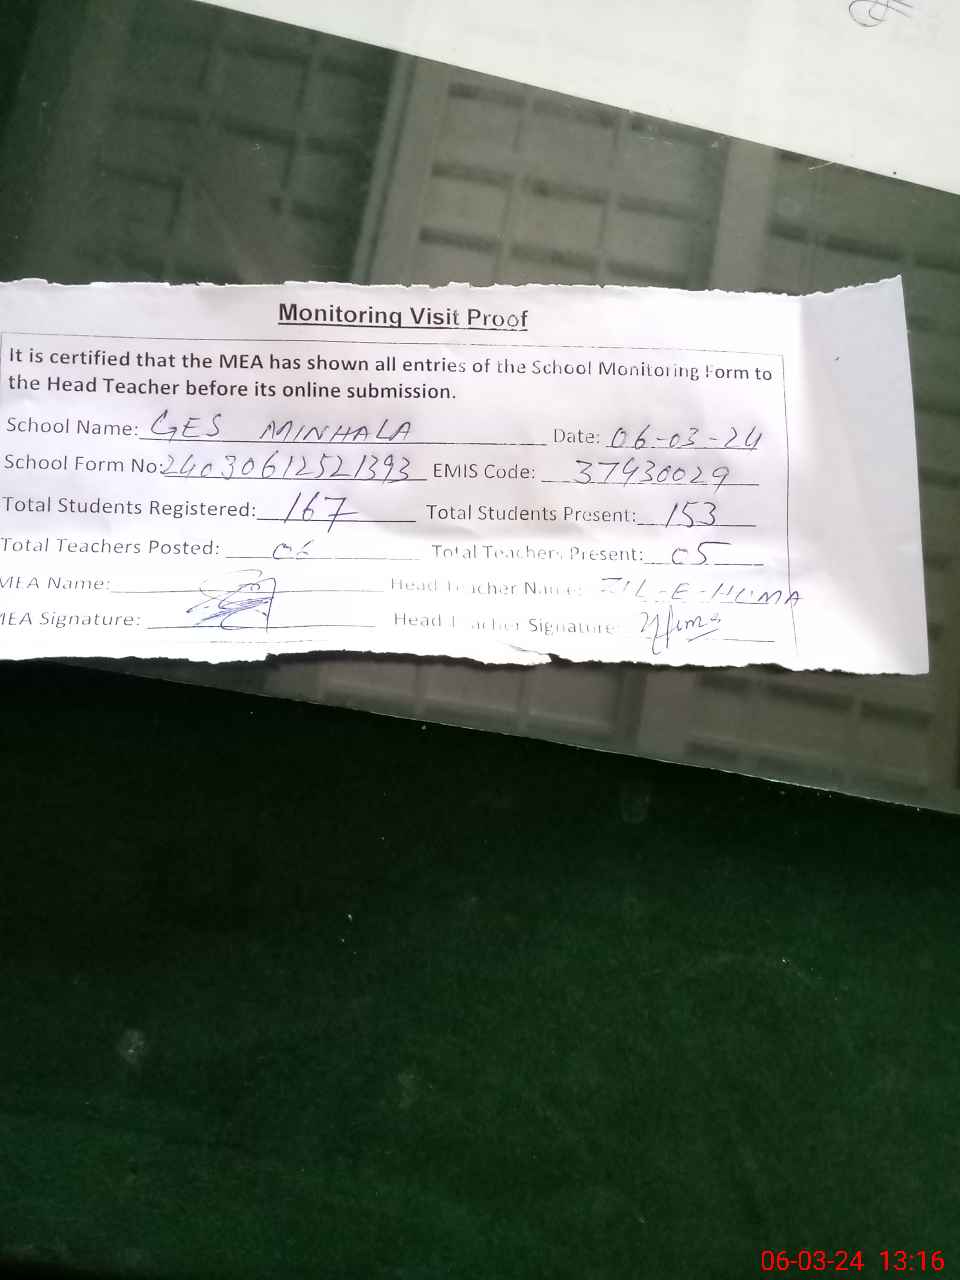 Monitoring Visit Proof
It is certified that the MEA has shown all entries of the School Monitoring Form to
the Head Teacher before its online submission.
School Name: GES MINHALA Date: 06-03-24
School Form No: 24030612521393 EMIS Code: 37430029
Total Students Registered: 167 Total Students Present: 153
Total Teachers Posted: 06 Total Teachers Present: 05
MEA Name: Head Teacher Name: ZIL-E-HUMA
MEA Signature: Head Teacher Signature:
06-03-24 13:16